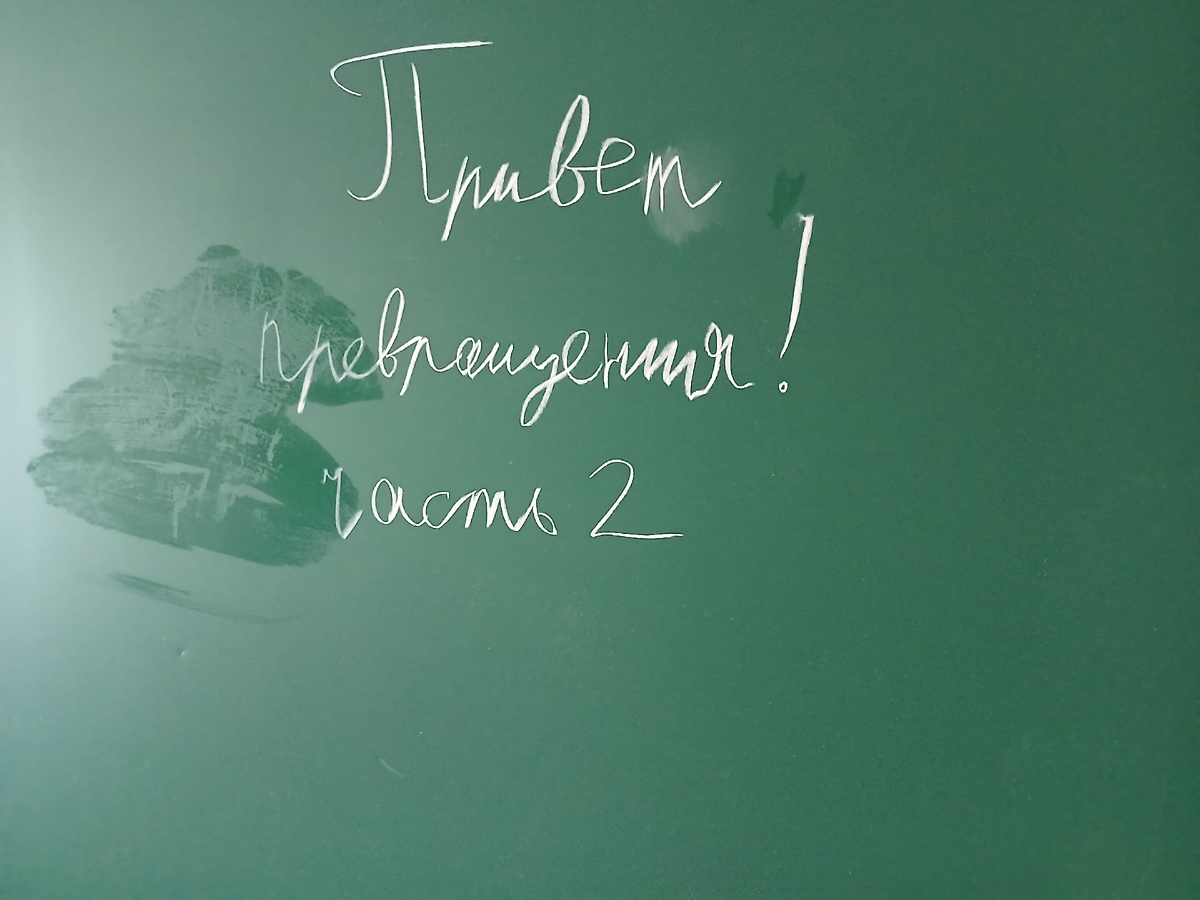 Привет
превращения!
часть 2